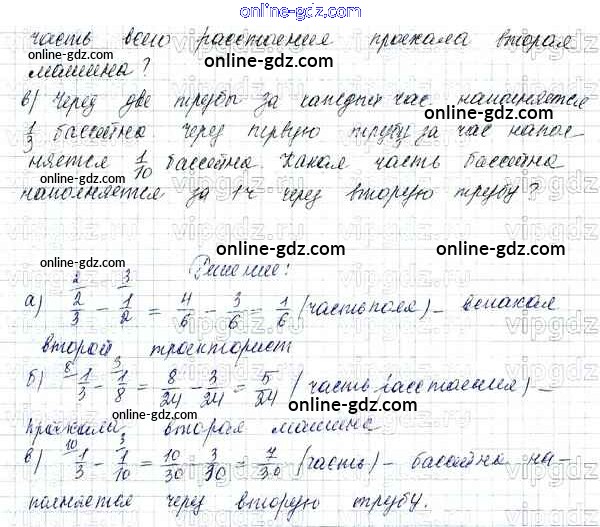 online-gdz.com
часть всего расстояния проехала вторая
машина?
online-gdz.com
в) Через две трубы за каждый час наполняется
1/3 бассейна. Через первую трубу за час напол-
няется 1/10 бассейна. Какая часть бассейна
наполняется за 1 ч через вторую трубу?
online-gdz.com
online-gdz.com
online-gdz.com
Решение:
а) 2/3 (2) - 1/2 (3) = 4/6 - 3/6 = 1/6 (часть поля) - вспахал
второй тракторист
б) 1/3 (8) - 1/8 (3) = 8/24 - 3/24 = 5/24 (часть расстояния) -
проехала вторая машина
в) 1/3 (10) - 1/10 (3) = 10/30 - 3/30 = 7/30 (часть) - бассейна на-
полняется через вторую трубу.
online-gdz.com
online-gdz.com
online-gdz.com
online-gdz.com
online-gdz.com